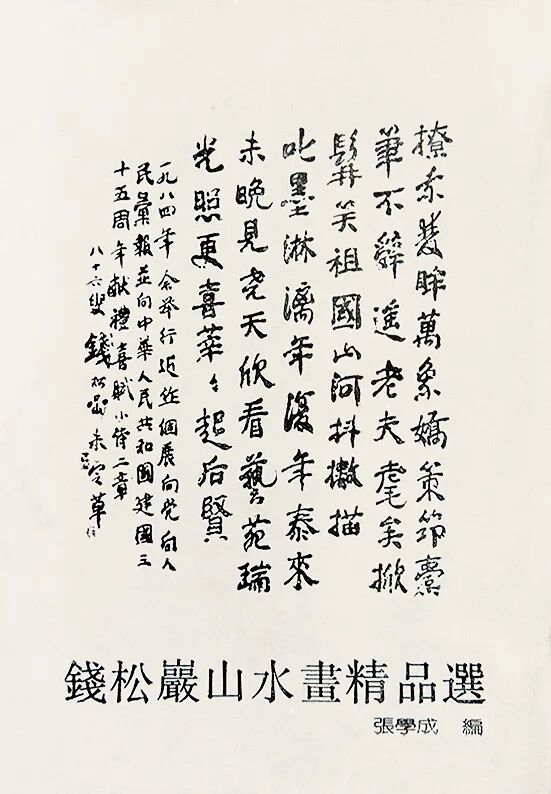 撩雙眸萬象嬌策筇囊
筆不辭遥老夫耄矣掀
髯笑祖國山河抖擻描
叱墨淋漓年復年泰來
未晚見尭天欣看藝苑瑞
光照更喜莘々起后賢
一九八四年余舉行近作個展向党向人
民彙報並向中華人民共和國建國三
十五周年獻禮喜賦小詩二章
八十六叟錢松喦未定草
錢松巖山水畫精品選
張學成 編